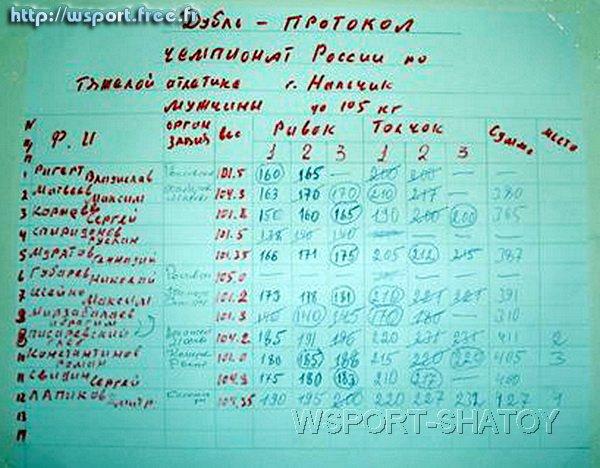 http://wsport.free.fr
Дубль - ПРОТОКОЛ
ЧЕМПИОНАТ РОССИИ по
ТЯЖЕЛОЙ атлетике г. Нальчик
МУЖЧИНЫ до 105 кг
N п/п Ф. И ОРГАН ЗАЦИЯ вес Рывок Толчок Сумма место
1 2 3 1 2 3
1 Ригерт Владислав 101.5 160 165 — 200 200 —
2 Матвеев Максим 104.3 163 170 170 210 217 — 380
3 Сергей 101.2 150 160 165 190 200 200 365
4 Спиридонов Руслан 101.5 — — —
5 Муратов Геннадий 101.35 166 171 175 205 212 215 387
6 Губарев Николай 105.0 — — — — — —
7 Шейко Максим 101.2 173 178 181 210 221 221 391
8 Мирзабалаев Ибрагим 101.3 140 140 145 170 180 — 310
9 Писаревский Глеб 104.2 185 191 196 220 231 231 411 2
10 Константинов Роман 101.0 180 185 188 215 220 220 405 3
11 Свидин Сергей 104.9 175 180 183 210 217 — 400
12 ЛАПИКОВ Дмитр. 104.35 190 195 200 220 227 232 427 1
13
14
WSPORT-SHATOY